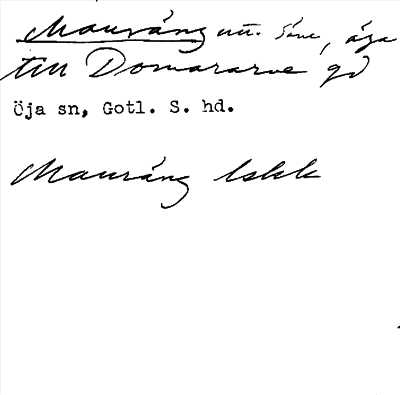 Mauräng utt. säve, äga
till Domararve gd
Öja sn, Gotl. S. hd.
Mauräng lskk